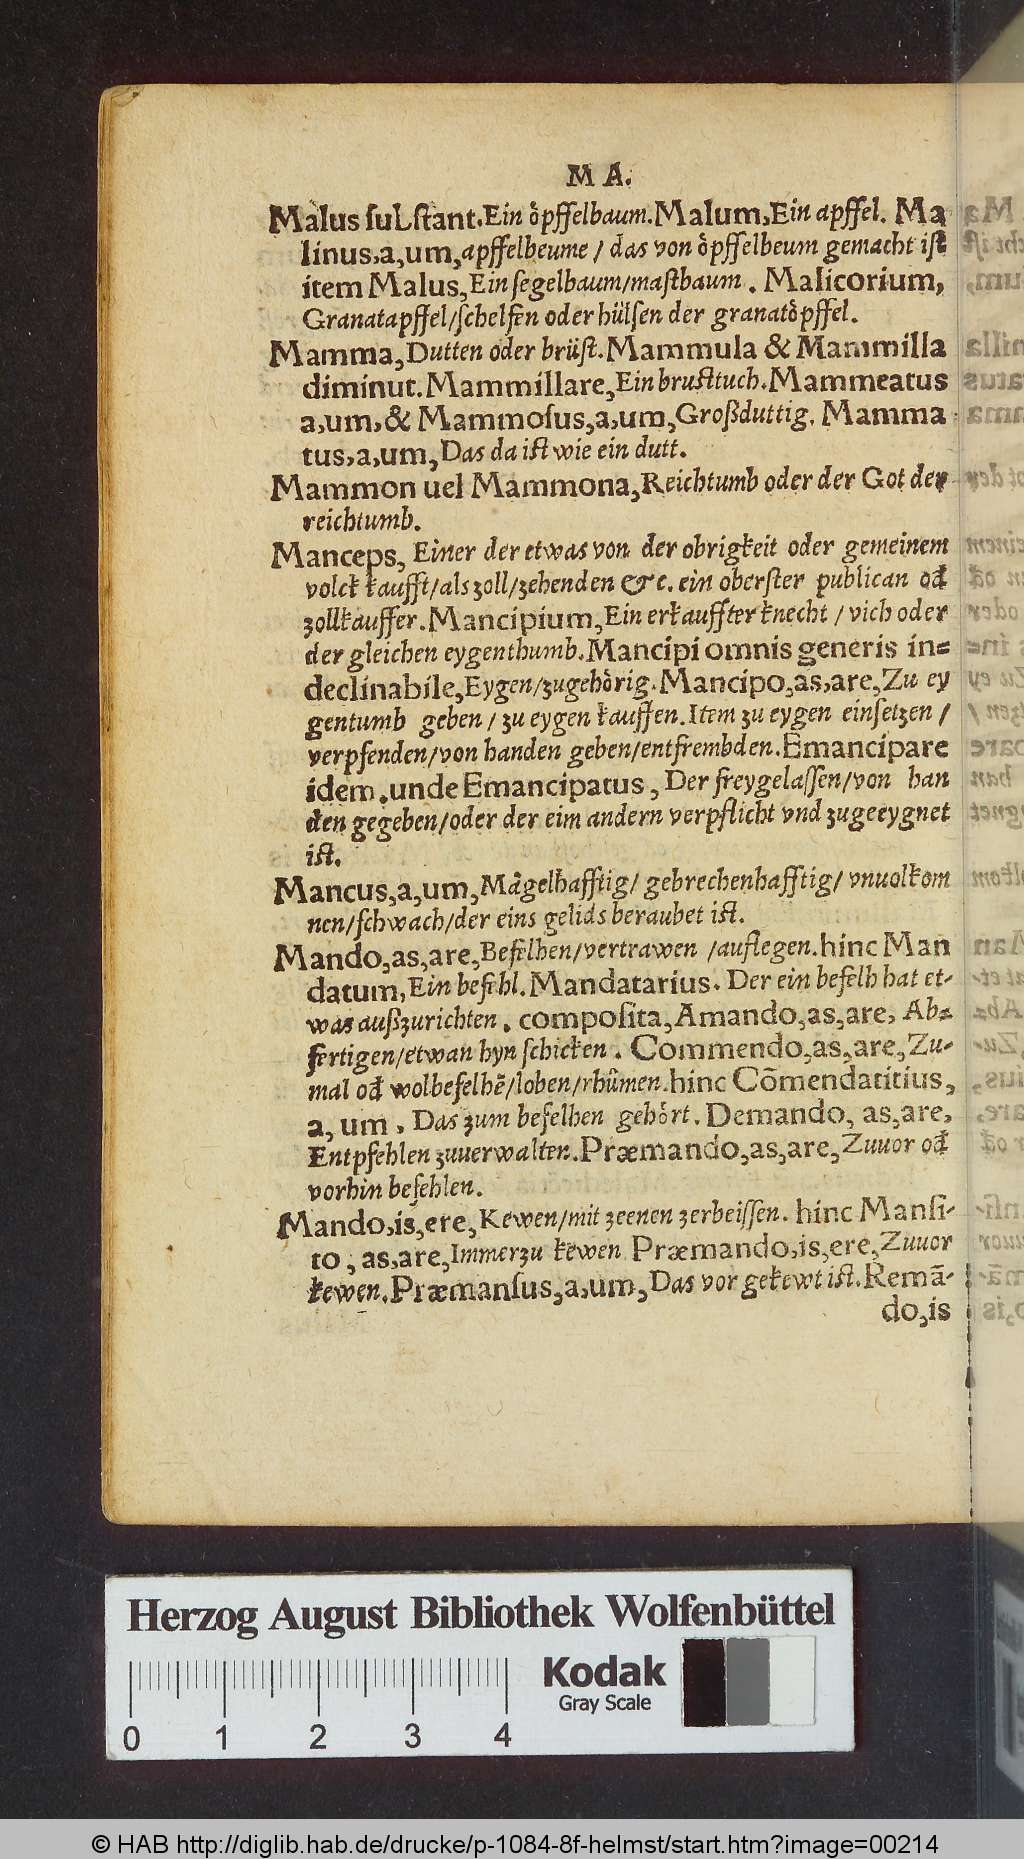 M A.
Malus ſubſtant. Ein òpffelbaum. Malum, Ein apffel. Ma
linus, a, um, apffelbeume / das von òpffelbeum gemacht iſt
item Malus, Ein ſegelbaum/maſtbaum . Malicorium,
Granatapffel/ſchelfen oder hülſen der granatòpffel.
Mamma, Dutten oder brüſt. Mammula & Mammilla
diminut. Mammillare, Ein bruſttuch. Mammeatus
a, um, & Mammoſus, a, um, Großduttig. Mamma
tus, a, um, Das da iſt wie ein dutt.
Mammon uel Mammona, Reichtumb oder der Got der
reichtumb.
Manceps, Einer der etwas von der obrigkeit oder gemeinem
volck kaufft/als zoll/zehenden &c. ein oberſter publican od
zollkauffer. Mancipium, Ein erkauffter knecht / vich oder
der gleichen eygenthumb. Mancipi omnis generis in=
declinabile, Eygen/zugehòrig. Mancipo, as, are, Zu ey
gentumb geben / zu eygen kauffen. Item zu eygen einſetzen /
verpfenden/von handen geben/entfrembden. Emancipare
idem. unde Emancipatus, Der freygelaſſen/von han
den gegeben/oder der eim andern verpflicht vnd zugeeygnet
iſt.
Mancus, a, um, Mãgelhafftig/ gebrechenhafftig/ vnuolkom
nen/ſchwach/der eins gelids beraubet iſt.
Mando, as, are, Befelhen/vertrawen /auflegen. hinc Man
datum, Ein befehl. Mandatarius. Der ein befelh hat et-
was außzurichten . compoſita, Amando, as, are, Ab=
fertigen/etwan hyn ſchicken . Commendo, as, are, Zu-
mal od wolbefelhẽ/loben/rhûmen. hinc Cõmendatitius,
a, um . Das zum befelhen gehòrt. Demando, as, are,
Entpfehlen zuuerwalten. Præmando, as, are, Zuuor od
vorhin befehlen.
Mando, is, ere, Kewen/mit zeenen zerbeiſſen. hinc Manſi-
to, as, are, Immerzu kewen Præmando, is, ere, Zuuor
kewen. Præmanſus, a, um, Das vor gekewt iſt. Remã-
do, is
Herzog August Bibliothek Wolfenbüttel
Kodak
Gray Scale
0 1 2 3 4
© HAB http://diglib.hab.de/drucke/p-1084-8f-helmst/start.htm?image=00214